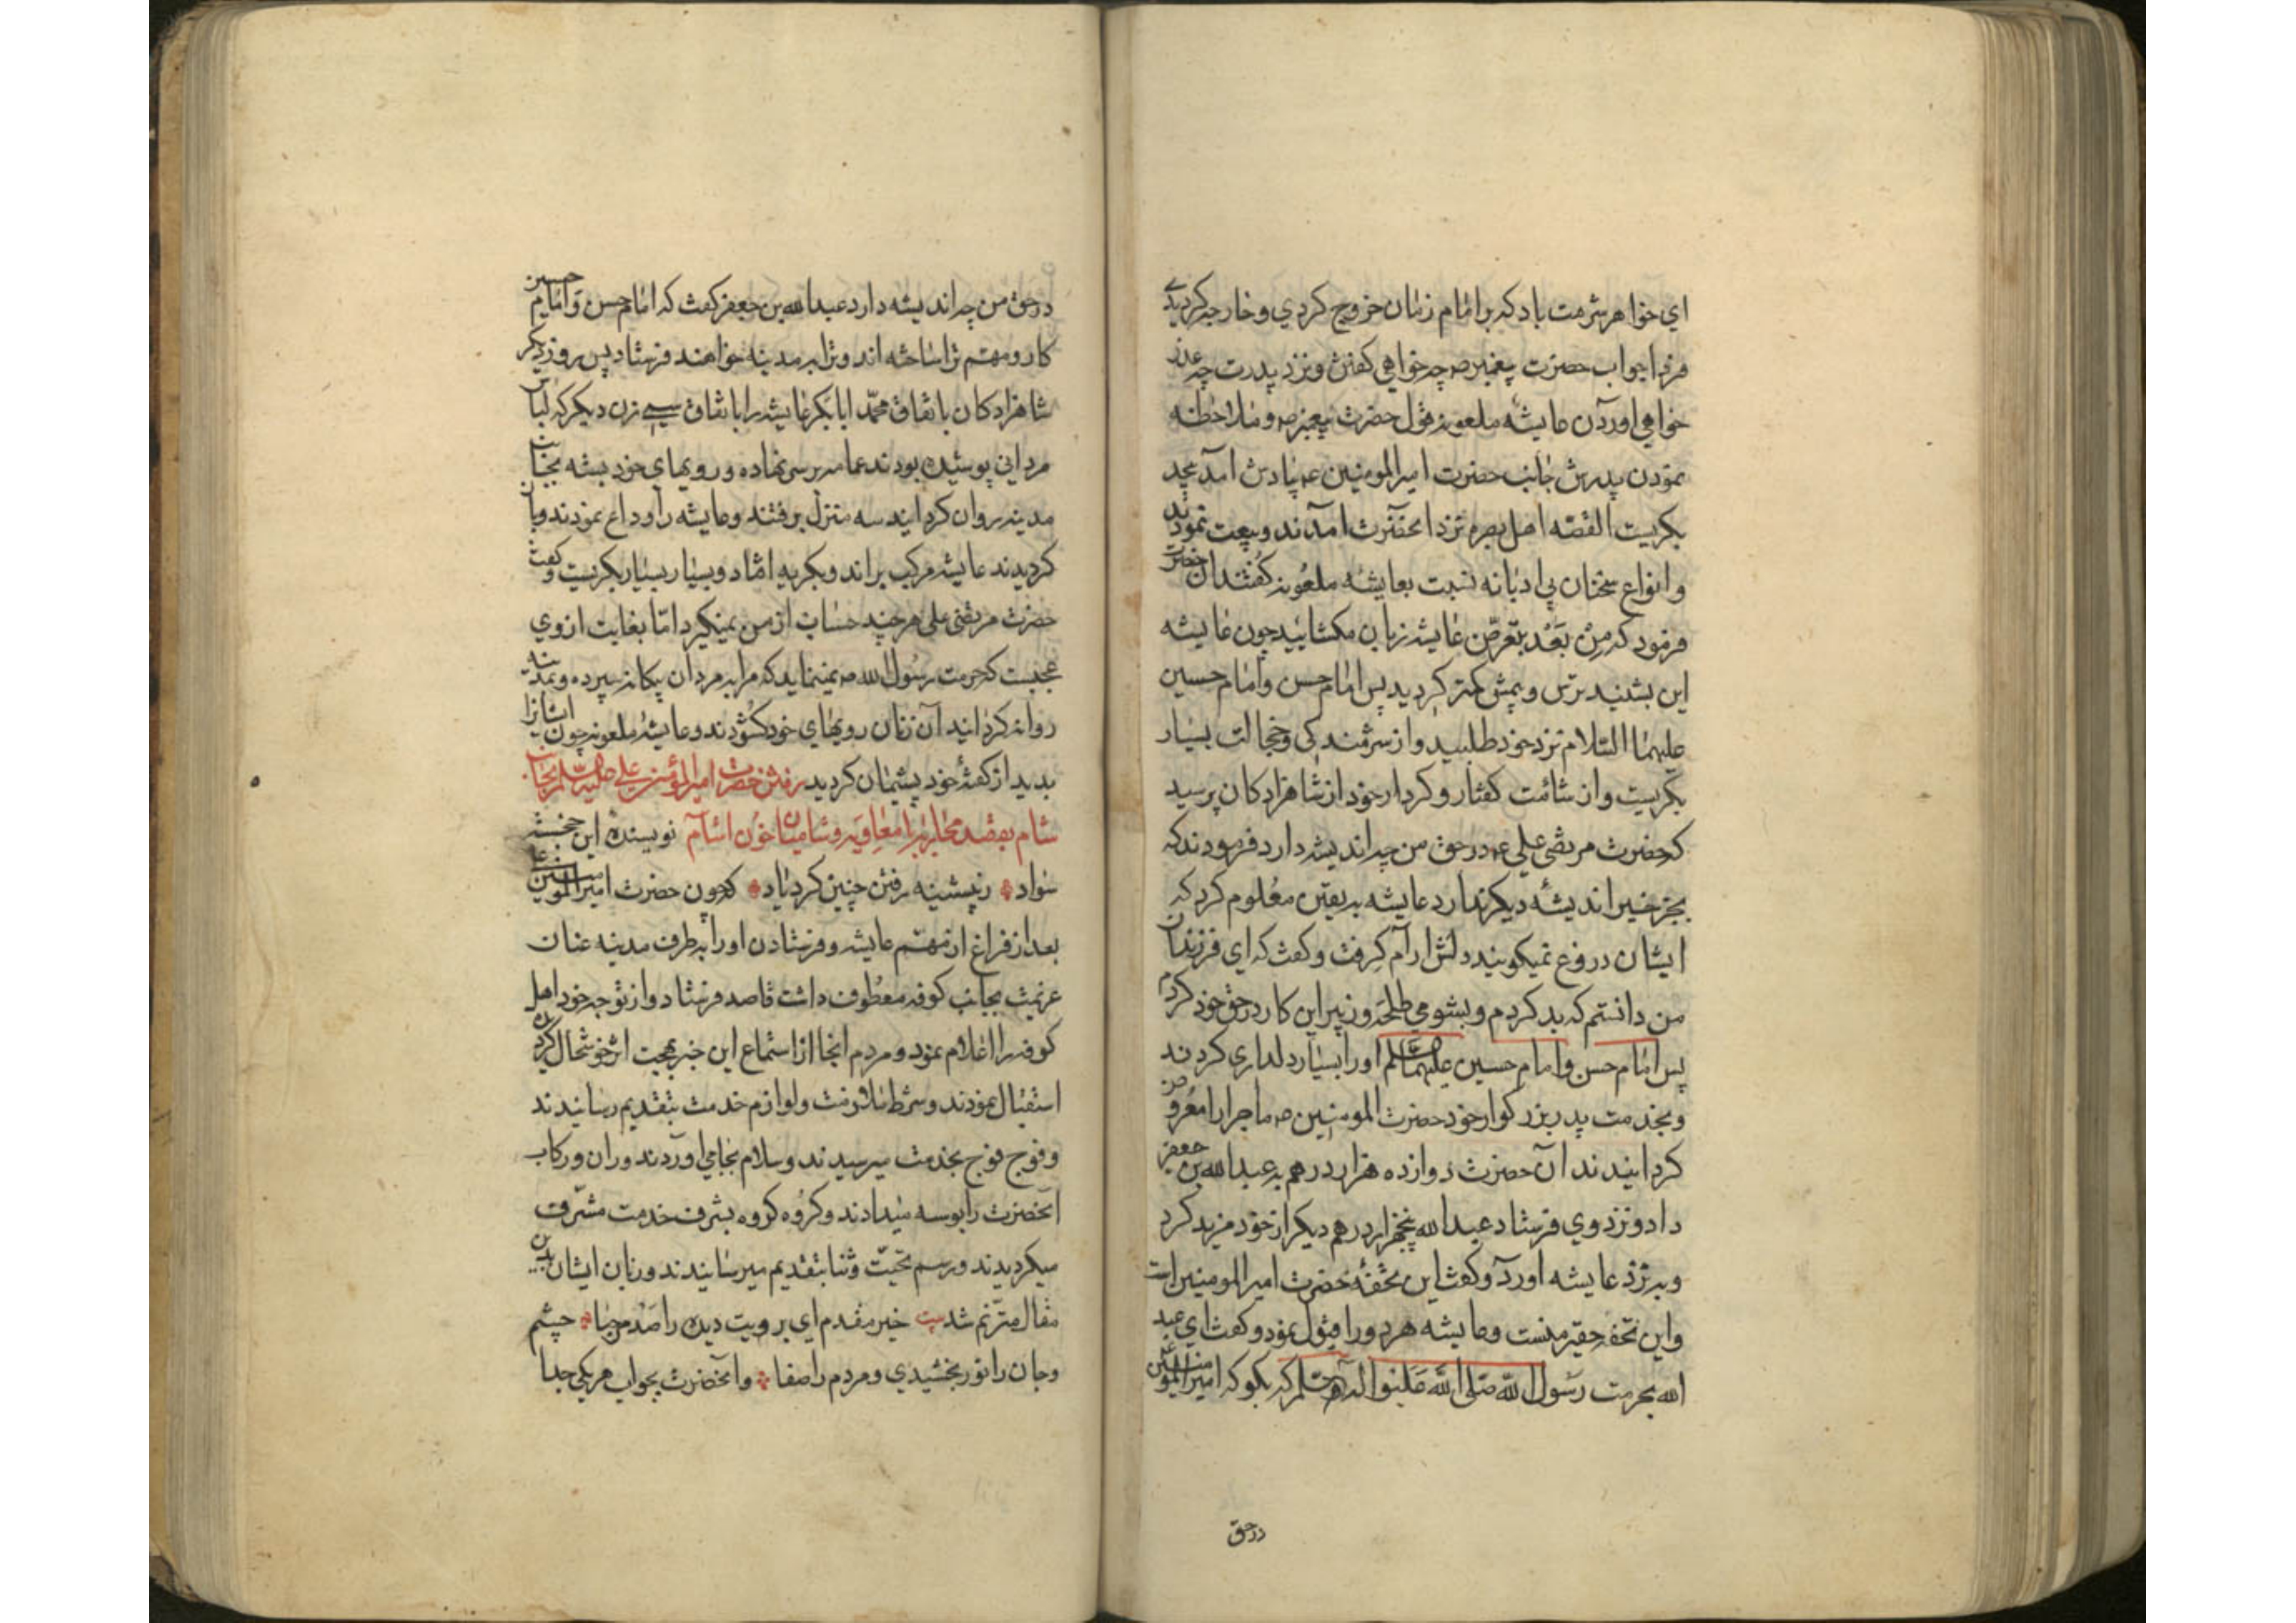 ای خواهر شرمت باد که بر امام زمان خروج کردی و خارجه کردیدی
فردا جواب حضرت پیغمبر ص چه خواهی کفتن و نزد پدرت چه عذر
خواهی اوردن عایشه ملعونه قول حضرت پیغمبر ص و ملاحظه
نمودن پدرش جانب حضرت امیرالمومنین ع بیادش آمد
بکریست القصه اهل بصره نزد انحضرت امدند و بیعت نمودند
و انواع سخنان بی ادبانه نسبت بعایشه ملعونه کفتند ان حضرت
فرمود که من بعد بتعرض عایشه زبان مکشایید چون عایشه
این بشنید ترس و بیمش کمتر کردید پس امام حسن و امام حسین
علیهما السلام نزد خود طلبید و از شرمندکی و خجالت بسیار
بکریست و از شآمت کفتار و کردار خود از شاهزادکان پرسید
که حضرت مرتضی علی ع در حق من چه اندیشه دارد فرمودند که
بجز خیر اندیشه دیکر ندارد عایشه به یقین معلوم کرد که
ایشان دروغ نمیکویند دلش ارام کرفت و کفت که ای فرزندان
من دانستم که بد کردم و بشومی طلحه و زبیر این کار در حق خود کردم
پس امام حسن و امام حسین علیهما السلم او را بسیار دلداری کردند
و بخدمت پدر بزرکوار خود حضرت المومنین ص ماجرا را معروض
کردانیدند ان حضرت دوازده هزار درهم به عبدالله بن جعفر
داد و نزد وی فرستاد عبدالله پنجهزار درهم دیکر از خود مزید کرد
و به نزد عایشه اورد و کفت این تحفهٔ حضرت امیرالمومنین است
و این تحفه حقیر منست و عایشه هر دو را قبول نمود و کفت ای عبد
الله بحرمت رسول الله صلی الله علیه و اله و سلم که بکو که امیرالمومنین ع
در حق
در حق من چه اندیشه دارد عبدالله بن جعفر کفت که امام حسن و امام حسین
کار و مهم ترا ساخته اند و ترا به مدینه خواهند فرستاد پس روز دیکر
شاهزادکان باتفاق محمد ابابکر عایشه را باتفاق سی زن دیکر که لباس
مردانی پوشیده بودند عمامه بر سر نهاده و رویهای خود بسته بجانب
مدینه روان کردانیدند سه منزل برفتند و عایشه را وداع نمودند و باز
کردیدند عایشه مرکب براند و بکریه افتاد و بسیار بسیار بکریست و کفت
حضرت مرتضی علی هر چند حساب از من نمیکیرد اما بغایت از وی
عجبست که حرمت رسول الله ص نمینماید که مرا به مردان بیکانه سپرده و بمدینه
روانه کردانید آن زنان رویهای خود کشودند و عایشه ملعونه چون ایشانرا
بدید از کفتهٔ خود پشیمان کردید رفتن حضرت امیرالمؤمنین علی علیه السلم بجانب
شام بقصد محاربه با معاویه و شامیان خون اشام نویسنده این خجسته
سواد ز پیشینه رفتن چنین کرد یاد که چون حضرت امیرالمومنین علی
بعد از فراغ از مهم عایشه و فرستادن او را به طرف مدینه عنان
عزیمت بجانب کوفه معطوف داشت قاصد فرستاد و از توجه خود اهل
کوفه را اعلام نمود و مردم انجا از استماع این خبر بهجت اثر خوشحال کردیدند
استقبال نمودند و شرط ملازمت و لوازم خدمت بتقدیم رسانیدند
و فوج فوج بخدمت میرسیدند و سلام بجا می اوردند و ران و رکاب
انحضرت را بوسه میدادند و کروه کروه بشرف خدمت مشرف
میکردیدند و رسم تحیت و ثنا بتقدیم میرسانیدند و زبان ایشان بدین
مقال مترنم شد بیت خیر مقدم ای برویت دیده را صد مرحبا چشم
و جان را نور بخشیدی و مردم را صفا و انحضرت بجواب هر یکی جدا